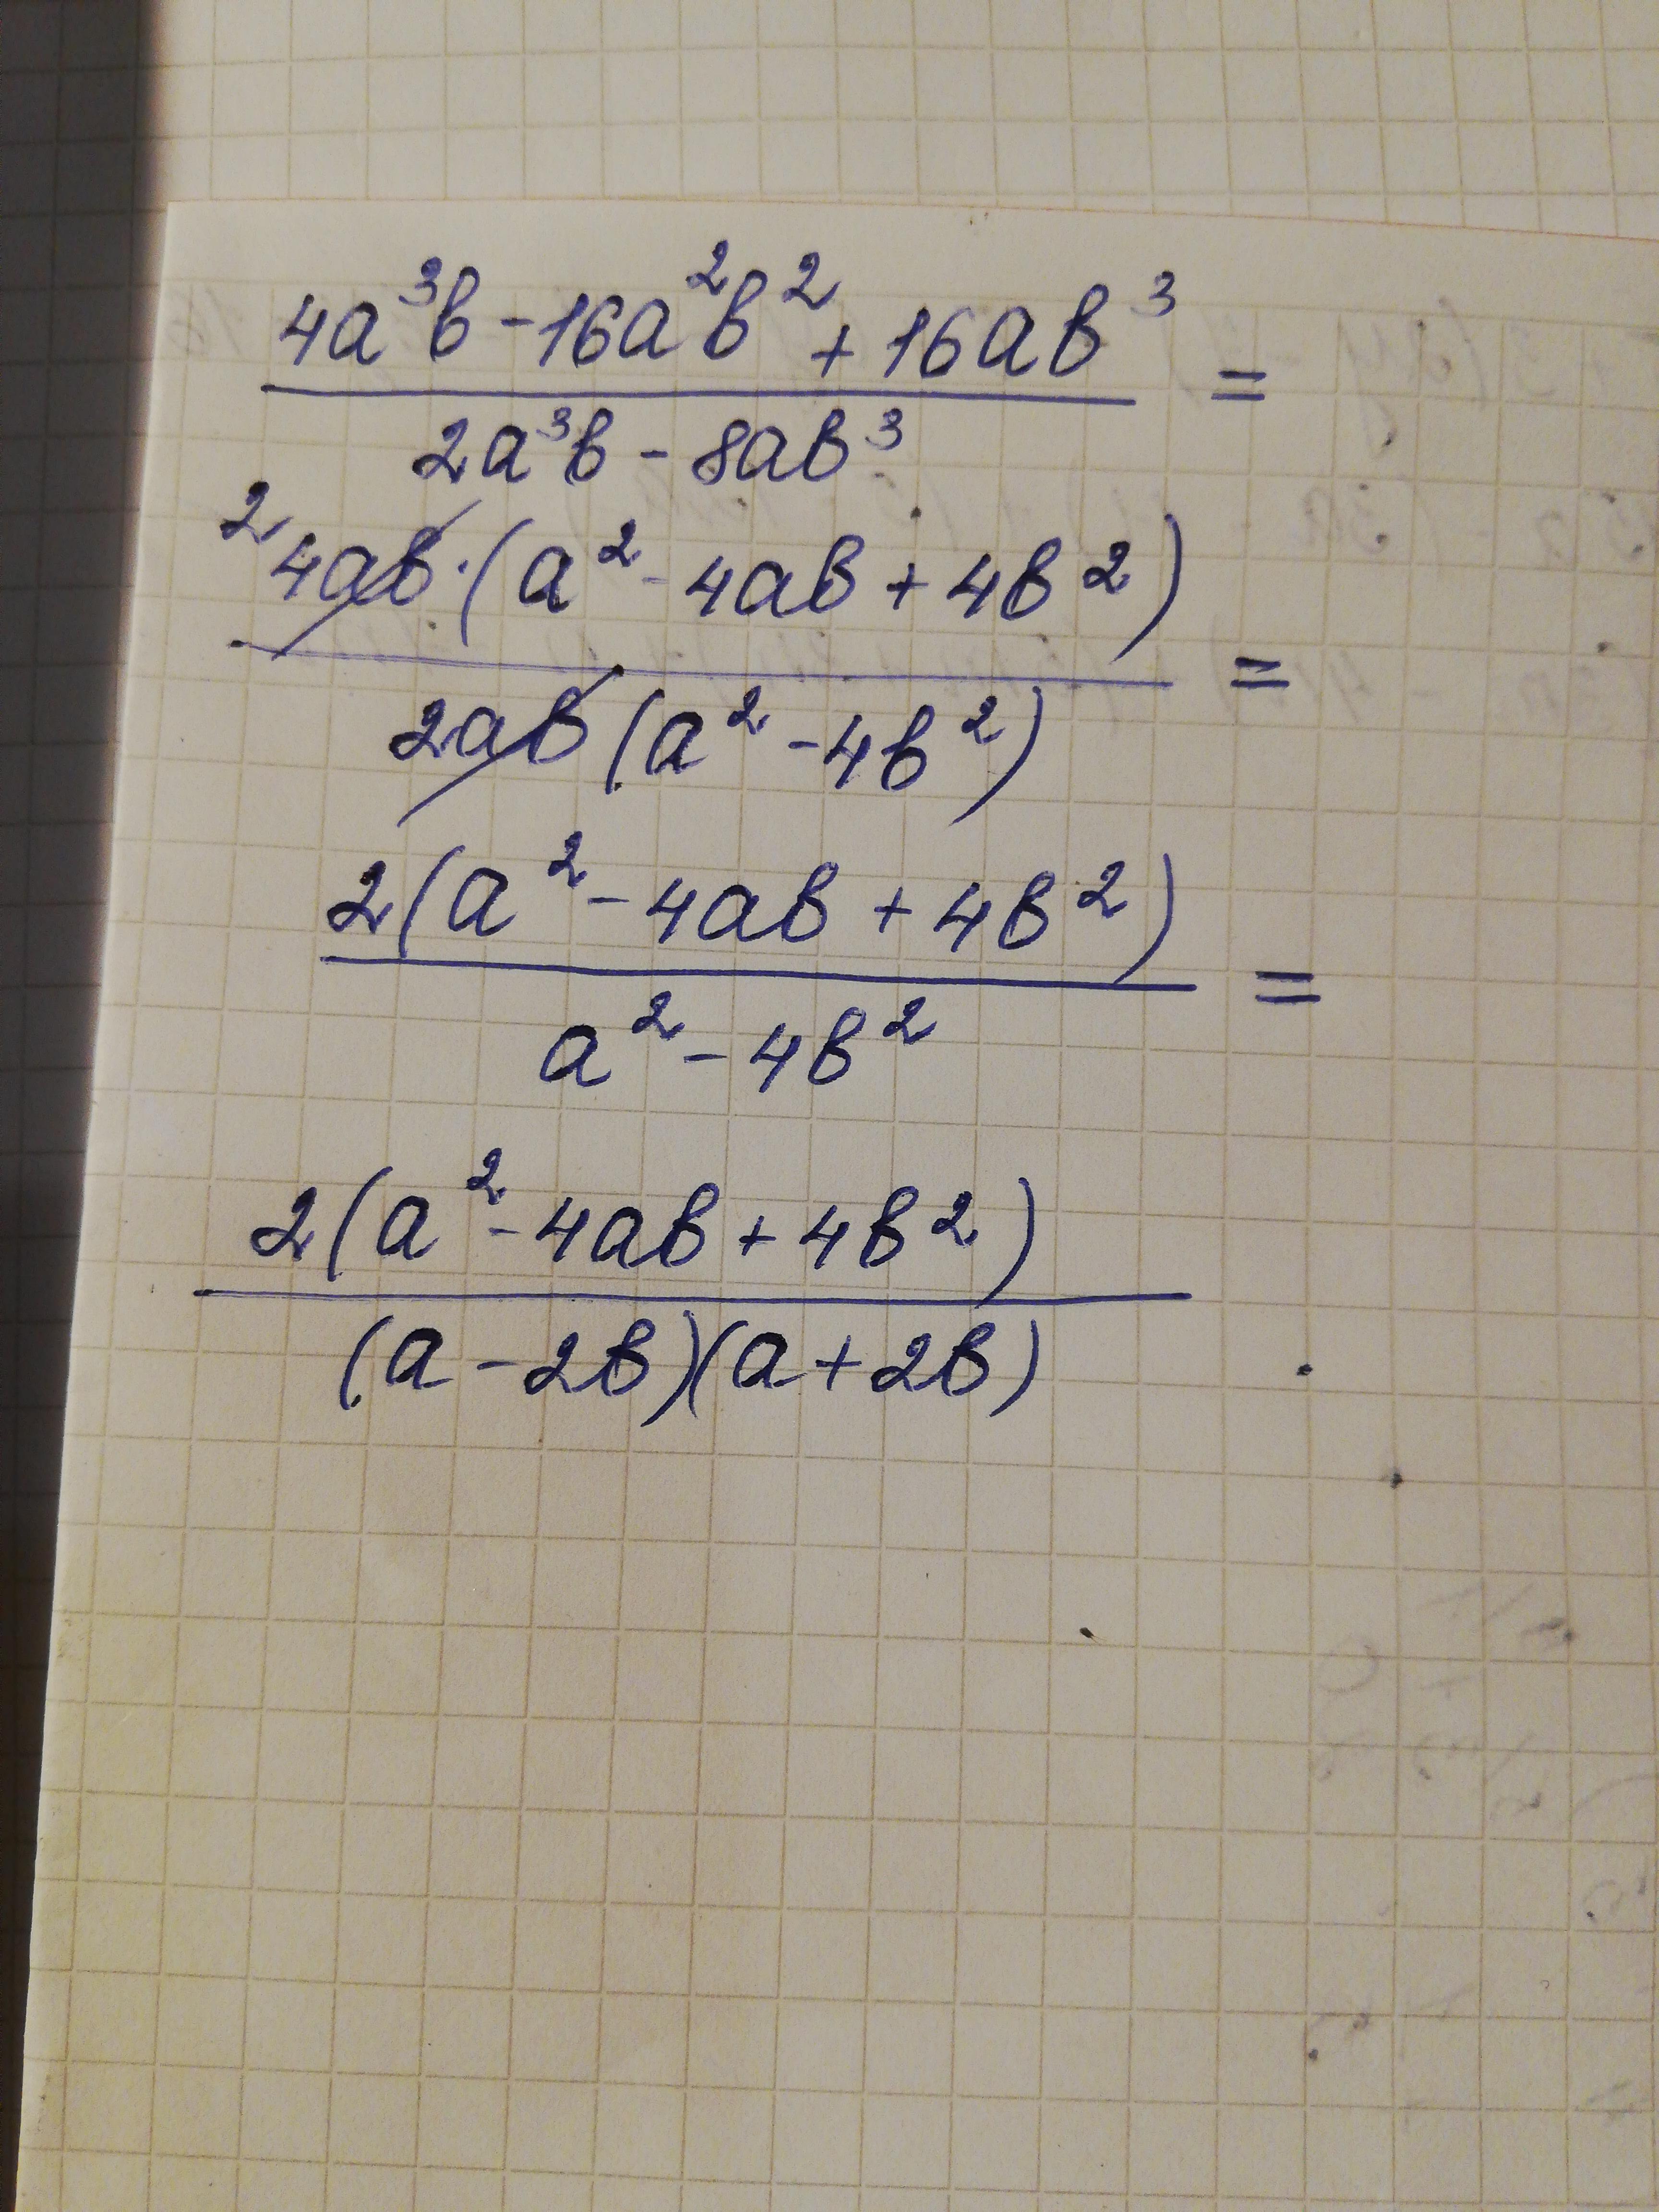 4a³b - 16a²b² + 16ab³ =
2a³b - 8ab³
2 4ab·(a² - 4ab + 4b²) =
2ab(a² - 4b²)
2(a² - 4ab + 4b²) =
a² - 4b²
2(a² - 4ab + 4b²)
(a - 2b)(a + 2b)